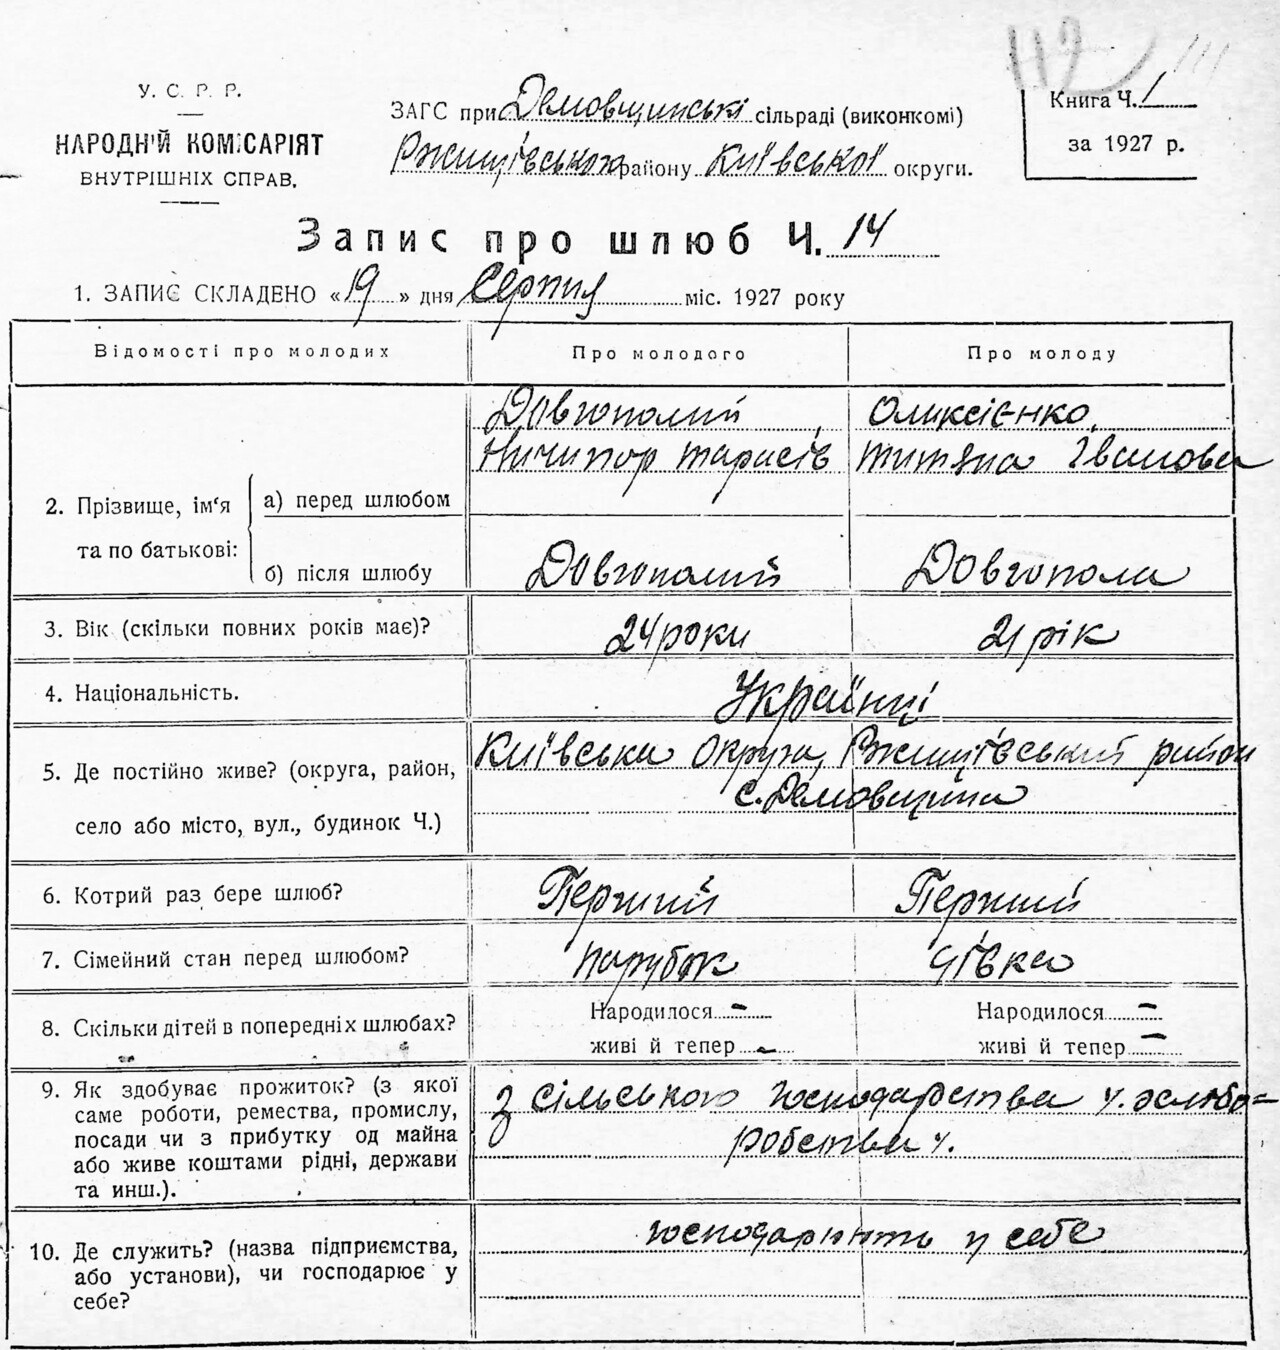 112 111
У. С. Р. Р.
НАРОДНІЙ КОМІСАРІЯТ
ВНУТРІШНІХ СПРАВ.
ЗАГС при Демовщинські сільраді (виконкомі)
Ржищівського району Київської округи.
Книга Ч. 1
за 1927 р.
Запис про шлюб Ч. 14
1. ЗАПИС СКЛАДЕНО «19» дня Серпня міс. 1927 року
Відомості про молодих Про молодого Про молоду
2. Прізвище, ім'я та по батькові:
а) перед шлюбом
Довгополий, Ничипор Тарасів
Оликсієнко, Титяна Іванова
б) після шлюбу Довгополий Довгопола
3. Вік (скільки повних років має)? 24 роки 21 рік
4. Національність. Українці
5. Де постійно живе? (округа, район,
село або місто, вул., будинок Ч.)
Київська округа, Ржищівський район
с. Демовщина
6. Котрий раз бере шлюб? Перший Перший
7. Сімейний стан перед шлюбом? парубок дівка
8. Скільки дітей в попередніх шлюбах?
Народилося – Народилося –
живі й тепер – живі й тепер –
9. Як здобуває прожиток? (з якої
саме роботи, ремества, промислу,
посади чи з прибутку од майна
або живе коштами рідні, держави
та инш.).
З сільського господарства ч. хлібо=
робства ч.
10. Де служить? (назва підприємства,
або установи), чи господарює у
себе?
господарюють у себе